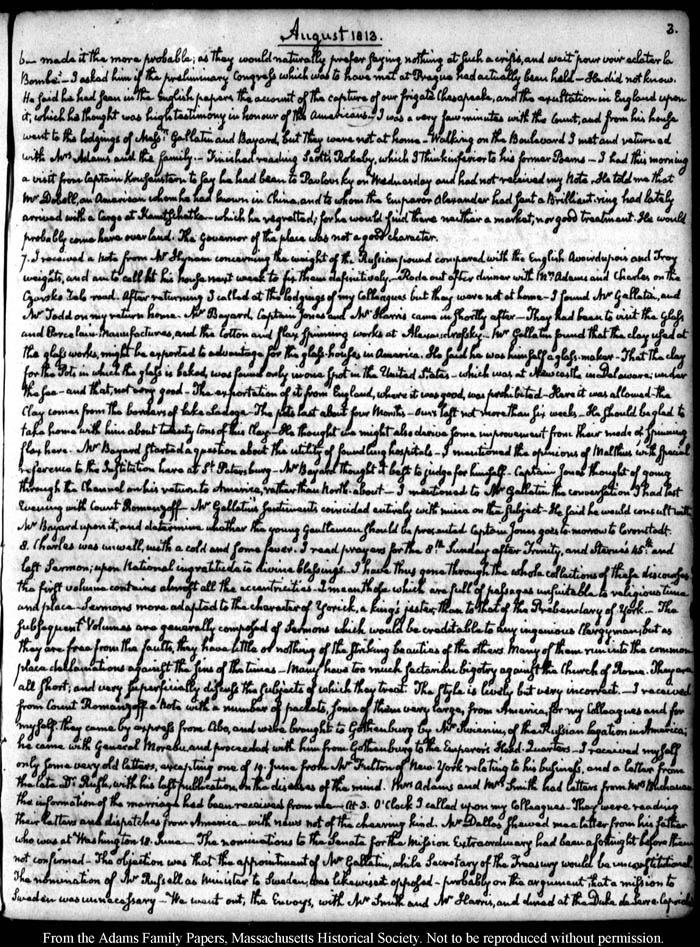 August 1813.
3.
6— made it the more probable; as they would naturally prefer saying nothing at such a crisis, and wait "pour voir eclater la
Bombe."— I asked him if the preliminary Congress which was to have met at Prague had actually been held— He did not know.
He said he had seen in the English papers the account of the capture of our frigate Chesapeake, and the exultation in England upon
it, which he thought was high testimony in honour of the Americans.— I was a very few minutes with the Count, and from his house
went to the lodgings of Messrs Gallatin and Bayard, but they were not at home— Walking on the Boulevard I met and returned
with Mrs Adams and the family.— Finished reading Scott's Rokeby, which I think inferior to his former Poems— I had this morning
a visit from Captain Krusenstern to say he had been to Pavlovsky on Wednesday and had not received my Note— He told me that
Mr Dobell, an American whom he had known in China, and to whom the Emperor Alexander had sent a Brilliant ring had lately
arrived with a Cargo at Kamtschatka— which he regretted; for he would find there neither a market, nor good treatment. He would
probably come here over land. The Governor of the place was not a good character.
7. I received a Note from Mr concerning the weight of the Russian pound compared with the English Avoirdupois and Troy
weights, and am to call at his house next week to fix them definitively.— Rode out after dinner with Mrs Adams and Charles on the
Czarsko Zelo road. After returning I called at the lodgings of my Colleagues but they were not at home— I found Mr Gallatin, and
Mr Todd on my return home. Mr Bayard, Captain Jones and Mr Harris came in shortly after— They had been to visit the Glass
and Porcelain Manufactures, and the Cotton and flax spinning works at Alexandrofsky.— Mr Gallatin found that the clay used at
the glass works, might be exported to advantage for the glass-houses in America. He said he was himself a glass-maker— That the clay
for the Pots in which the glass is baked, was found only in one spot in the United States— which was at Newcastle in Delaware; under
the sea— and that, not very good— The exportation of it from England, where it was good, was prohibited— Here it was allowed— the
Clay comes from the borders of Lake Ladoga— The pots last about four Months— Ours last not more than six weeks— He should be glad to
take home with him about twenty tons of this Clay.— He thought we might also derive some improvement from their mode of spinning
flax here.— Mr Bayard started a question about the utility of foundling hospitals— I mentioned the opinions of Malthus with special
reference to the Institution here at St Petersburg— Mr Bayard thought it best to judge for himself— Captain Jones thought of going
through the Channel on his return to America, rather than North-about— I mentioned to Mr Gallatin the conversation I had last
Evening with Count Romanzoff— Mr Gallatin's sentiments coincided entirely with mine on the subject— He said he would consult with
Mr Bayard upon it, and determine whether the young Gentlemen should be presented. Captain Jones goes to-morrow to Cronstadt.
8. Charles was unwell, with a cold and some fever. I read prayers for the 8th Sunday after Trinity, and Sterne's 45th and
last Sermon; upon National ingratitude to divine blessings.— I have thus gone through the whole collections of these discourses
the first volume contains almost all the eccentricities— I mean those which are full of passages unsuitable to religious time
and place— Sermons more adapted to the character of Yorick, a king's jester, than to that of the Prebendary of York— The
subsequent Volumes are generally composed of Sermons which would be creditable to any ingenious Clergyman; but as
they are free from the faults, they have little or nothing of the striking beauties of the others. Many of them run into the common
place declamations against the sins of the times— Many have too much sectarian bigotry against the Church of Rome. They are
all short; and very superficially discuss the subjects of which they treat. The style is lively but very incorrect.— I received
from Count Romanzoff a Note with a number of packets, some of them very large, from America, for my Colleagues and for
myself. they came by express from Abo, and were brought to Gothenburg by Mr Swinin, of the Russian legation in America;
he came with General Moreau, and proceeded with him from Gothenburg to the Emperor's Head-Quarters— I received myself
only some very old letters, excepting one of 19. June from Mr Fulton of New York relating to his business, and a letter from
the late Dr Rush, with his last publication, on the diseases of the mind. Mrs Adams and Mrs Smith had letters from Mrs
the information of the marriage had been received from me— At 3. O'Clock I called upon my Colleagues— They were reading
their letters and dispatches from America— with news not of the cheering kind. Mr Dallas shewed me a letter from his father
who was at Washington 18. June— The nominations to the Senate for the Mission Extraordinary had been a fortnight before them
not confirmed— The objection was that the appointment of Mr Gallatin, while Secretary of the Treasury would be unconstitutional
The nomination of Mr Russell as Minister to Sweden, was likewise opposed— probably on the argument that a mission to
Sweden was unnecessary— We went out, the Envoys, with Mr Smith and Mr Harris, and dined at the Duke de Serra Capriola's
From the Adams Family Papers, Massachusetts Historical Society. Not to be reproduced without permission.